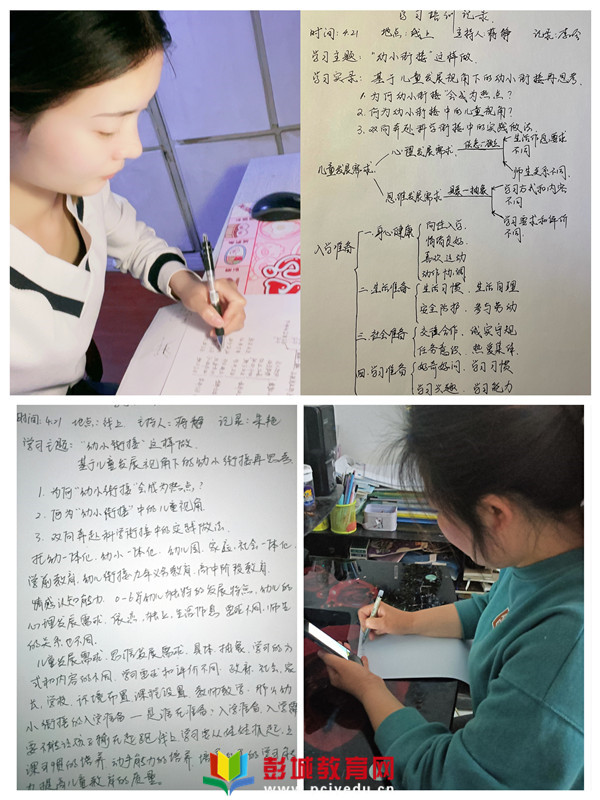 学习培训记录
时间：4.21 地点：线上 主持人：蒋静 记录：李吟
学习主题："幼小衔接"这样做
学习实录：基于儿童发展视角下的幼小衔接再思考
1. 为何幼小衔接"会成为热点？
2. 何为幼小衔接中的儿童视角？
3. 双向奔赴科学衔接中的实践做法
儿童发展需求
心理发展需求 依恋—独立
生活作息要求不同
师生关系不同.
思维发展需求 具象—抽象
学习方式和内容不同
学习要求和评价不同.
入学准备
一.身心健康
向往入学
情绪良好
喜欢运动
动作协调
二.生活准备
生活习惯、生活自理
安全防护、参与劳动
三.社会准备
交往合作、诚实守规
任务意识、热爱集体
四.学习准备
好奇好问、学习习惯
学习兴趣、学习能力
时间：4.21 地点：线上 主持人：蒋静 记录：朱艳
学习主题："幼小衔接"这样做
基于儿童发展视角下的幼小衔接再思考
1. 为何"幼小衔接"会成为热点？
2. 何为"幼小衔接"中的儿童视角
3. 双向奔赴科学衔接中的实践做法
托幼一体化、幼小一体化、幼儿园、家庭、社会一体化、
学前教育、幼儿衔接九年义务教育、高中阶段教育
情感认知能力、0-6岁幼儿独特的发展特点、幼儿的
心理发展需求、依恋、独立、生活作息、要求不同、师生
的关系也不同.
儿童发展需求、思维发展需求、具体、抽象、学习的方
式和内容的不同、学习要求和评价不同、政府、社会、家
长、学校、环境布置、课程设置
小衔接的入学准备
课习惯的培养、动手能力的培养
力提高儿童教育的质量.
彭城教育网
www.pcjyedu.cn